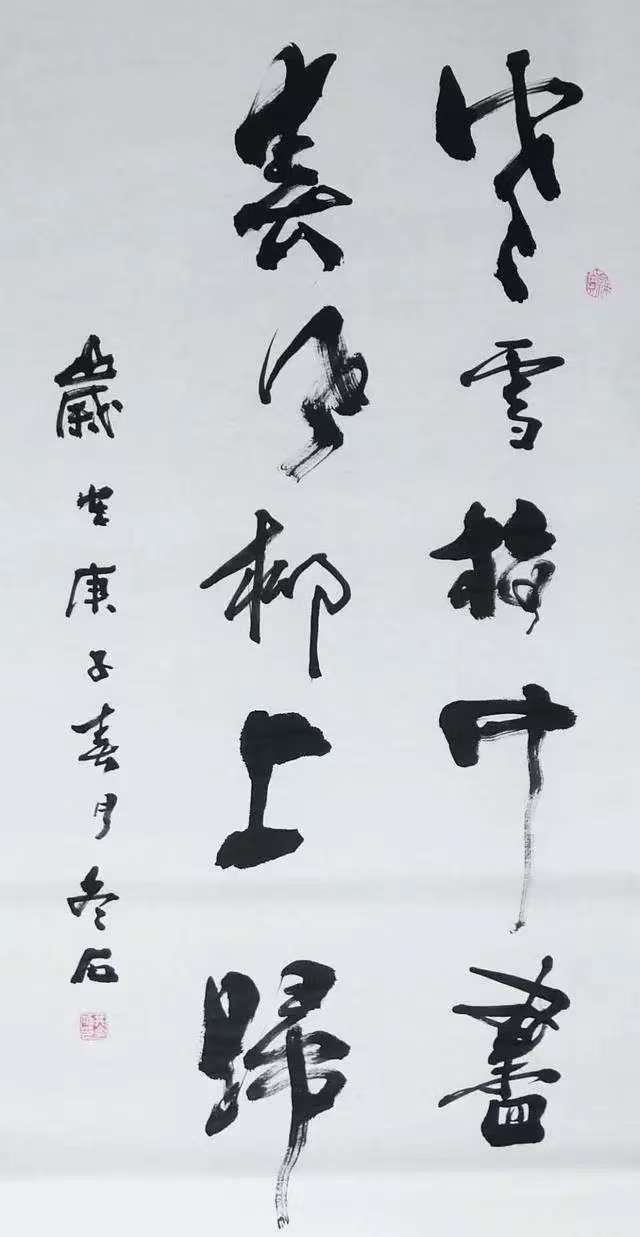 寒雪梅中盡
春風柳上歸
歲在庚子春月冬石